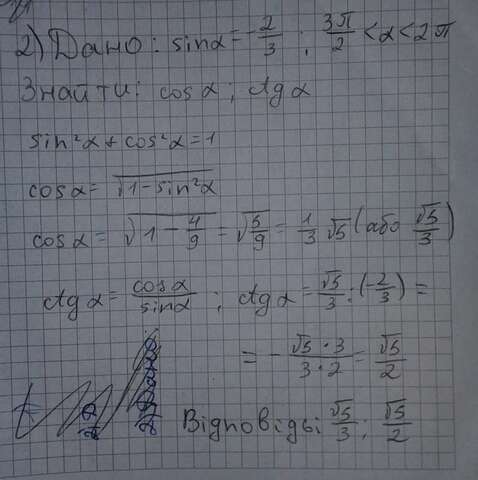 2) Дано: sinα = -2/3 ; 3π/2 < α < 2π
Знайти: cosα ; ctgα
sin²α + cos²α = 1
cosα = √(1 - sin²α)
cosα = √(1 - 4/9) = √(5/9) = 1/3 √5 (або √5/3)
ctgα = cosα/sinα ; ctgα = √5/3 : (-2/3) =
= - √5 · 3 / 3 · 2 = √5/2
Відповідь: √5/3 ; √5/2